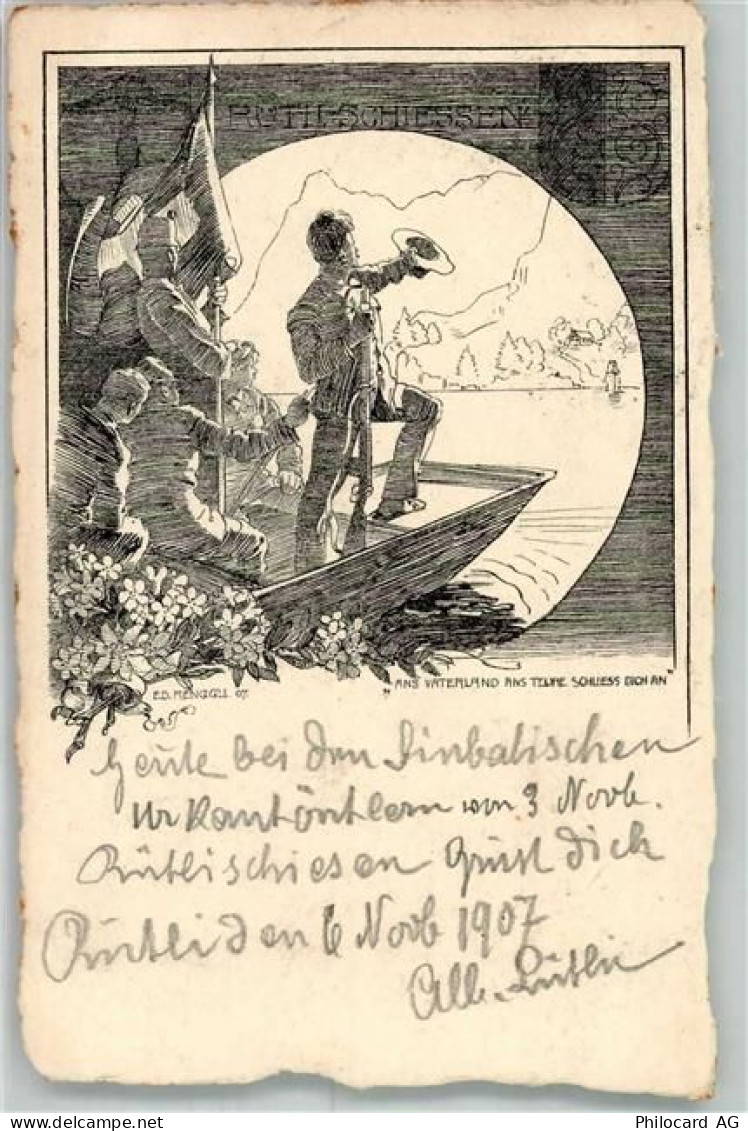 RÜTLI-SCHIESSEN
ED. RENGGLI 07.
"ANS VATERLAND ANS TEURE SCHLIESS DICH AN"
Heute bei den
ur Kantöntlern von 3 Novb.
Rütlischiesen Grüst dich
Rütli den 6 Novb 1907
Alb. Lütli
Philocard AG